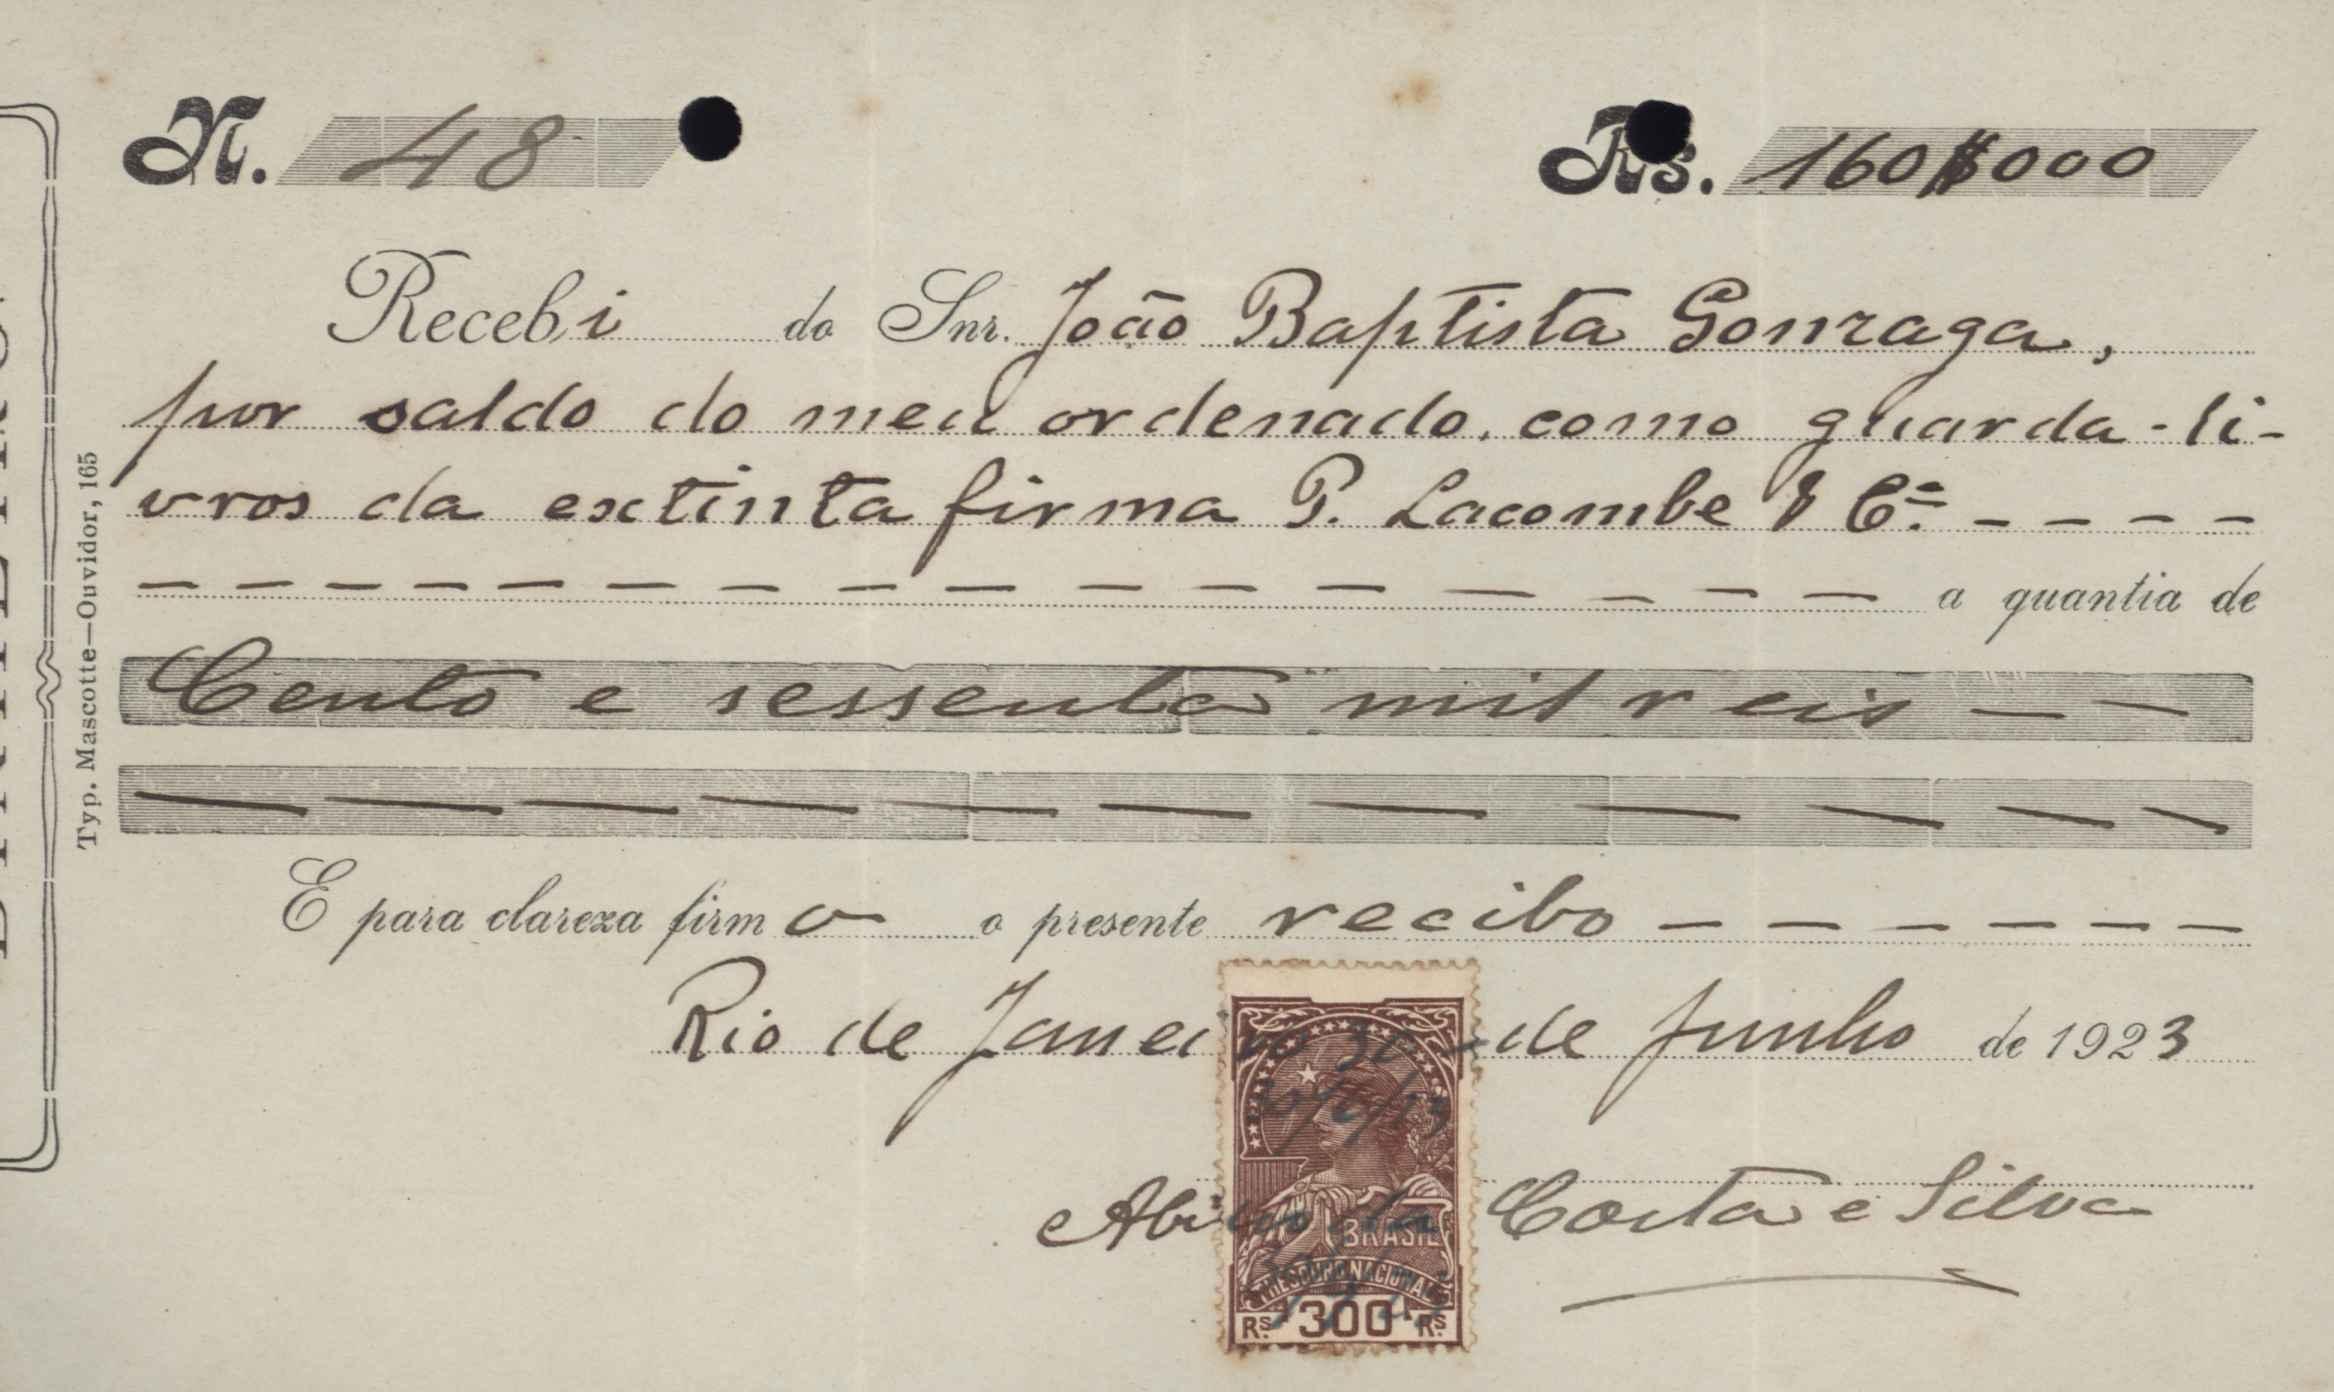 N. 48
Rs. 160$000
Recebi do Snr. João Baptista Gonzaga,
por saldo do meu ordenado, como guarda-li-
vros da extinta firma P. Lacombe & Cª. - - - -
- - - - - - - - - - - - - - - - - a quantia de
Cento e sessenta mil reis - -
- - - - - - - - - - -
E para clareza firmo o presente recibo - - - - - -
Rio de Janeiro 30 de Junho de 1923
Abilio da Costa e Silva
BRASIL
THESOURO NACIONAL
Rs. 300 Rs.
Typ. Mascotte—Ouvidor, 165